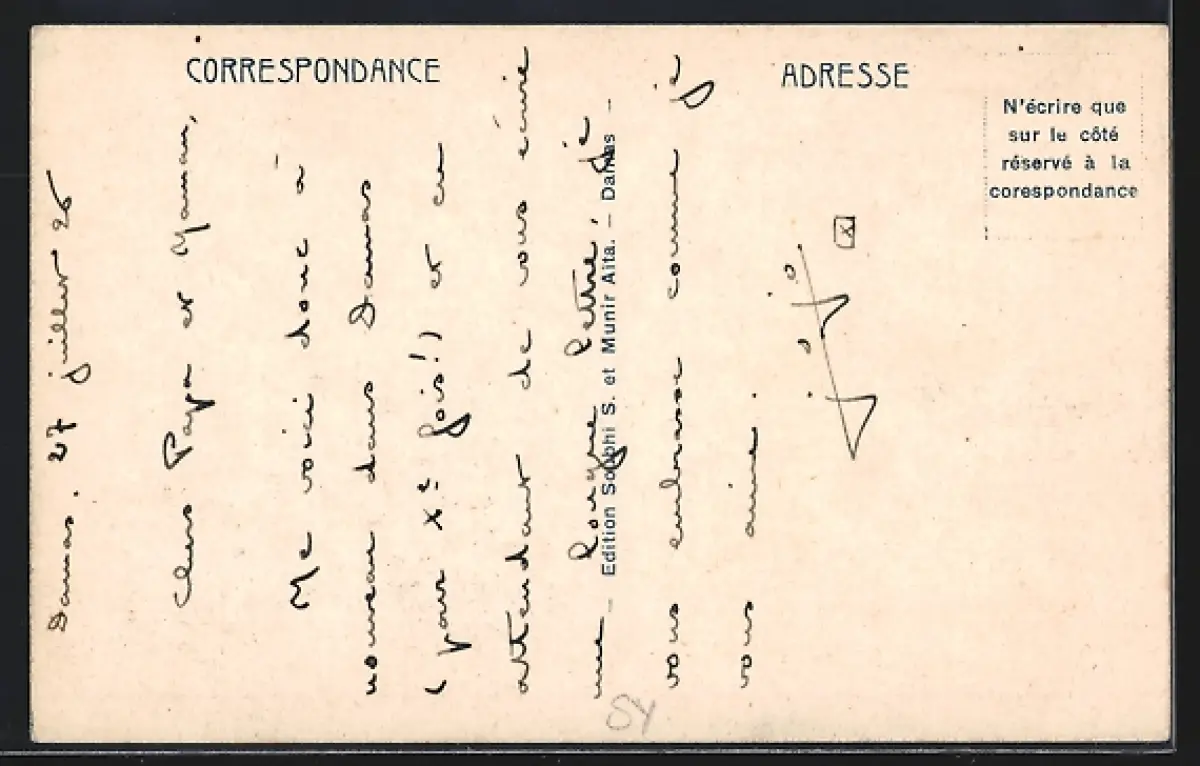 CORRESPONDANCE
ADRESSE
N'écrire que
sur le côté
réservé à la
corespondance
Damas. 27 juillet 26
Chers Papa et Maman,
Me voici donc à
nouveau dans Damas
(pour Xe fois!) et en
attendant de vous écrire
une longue lettre, je
vous embrasse comme je
vous aime.
— Edition Soubhi S. et Munir Aita. — Damas —
SY